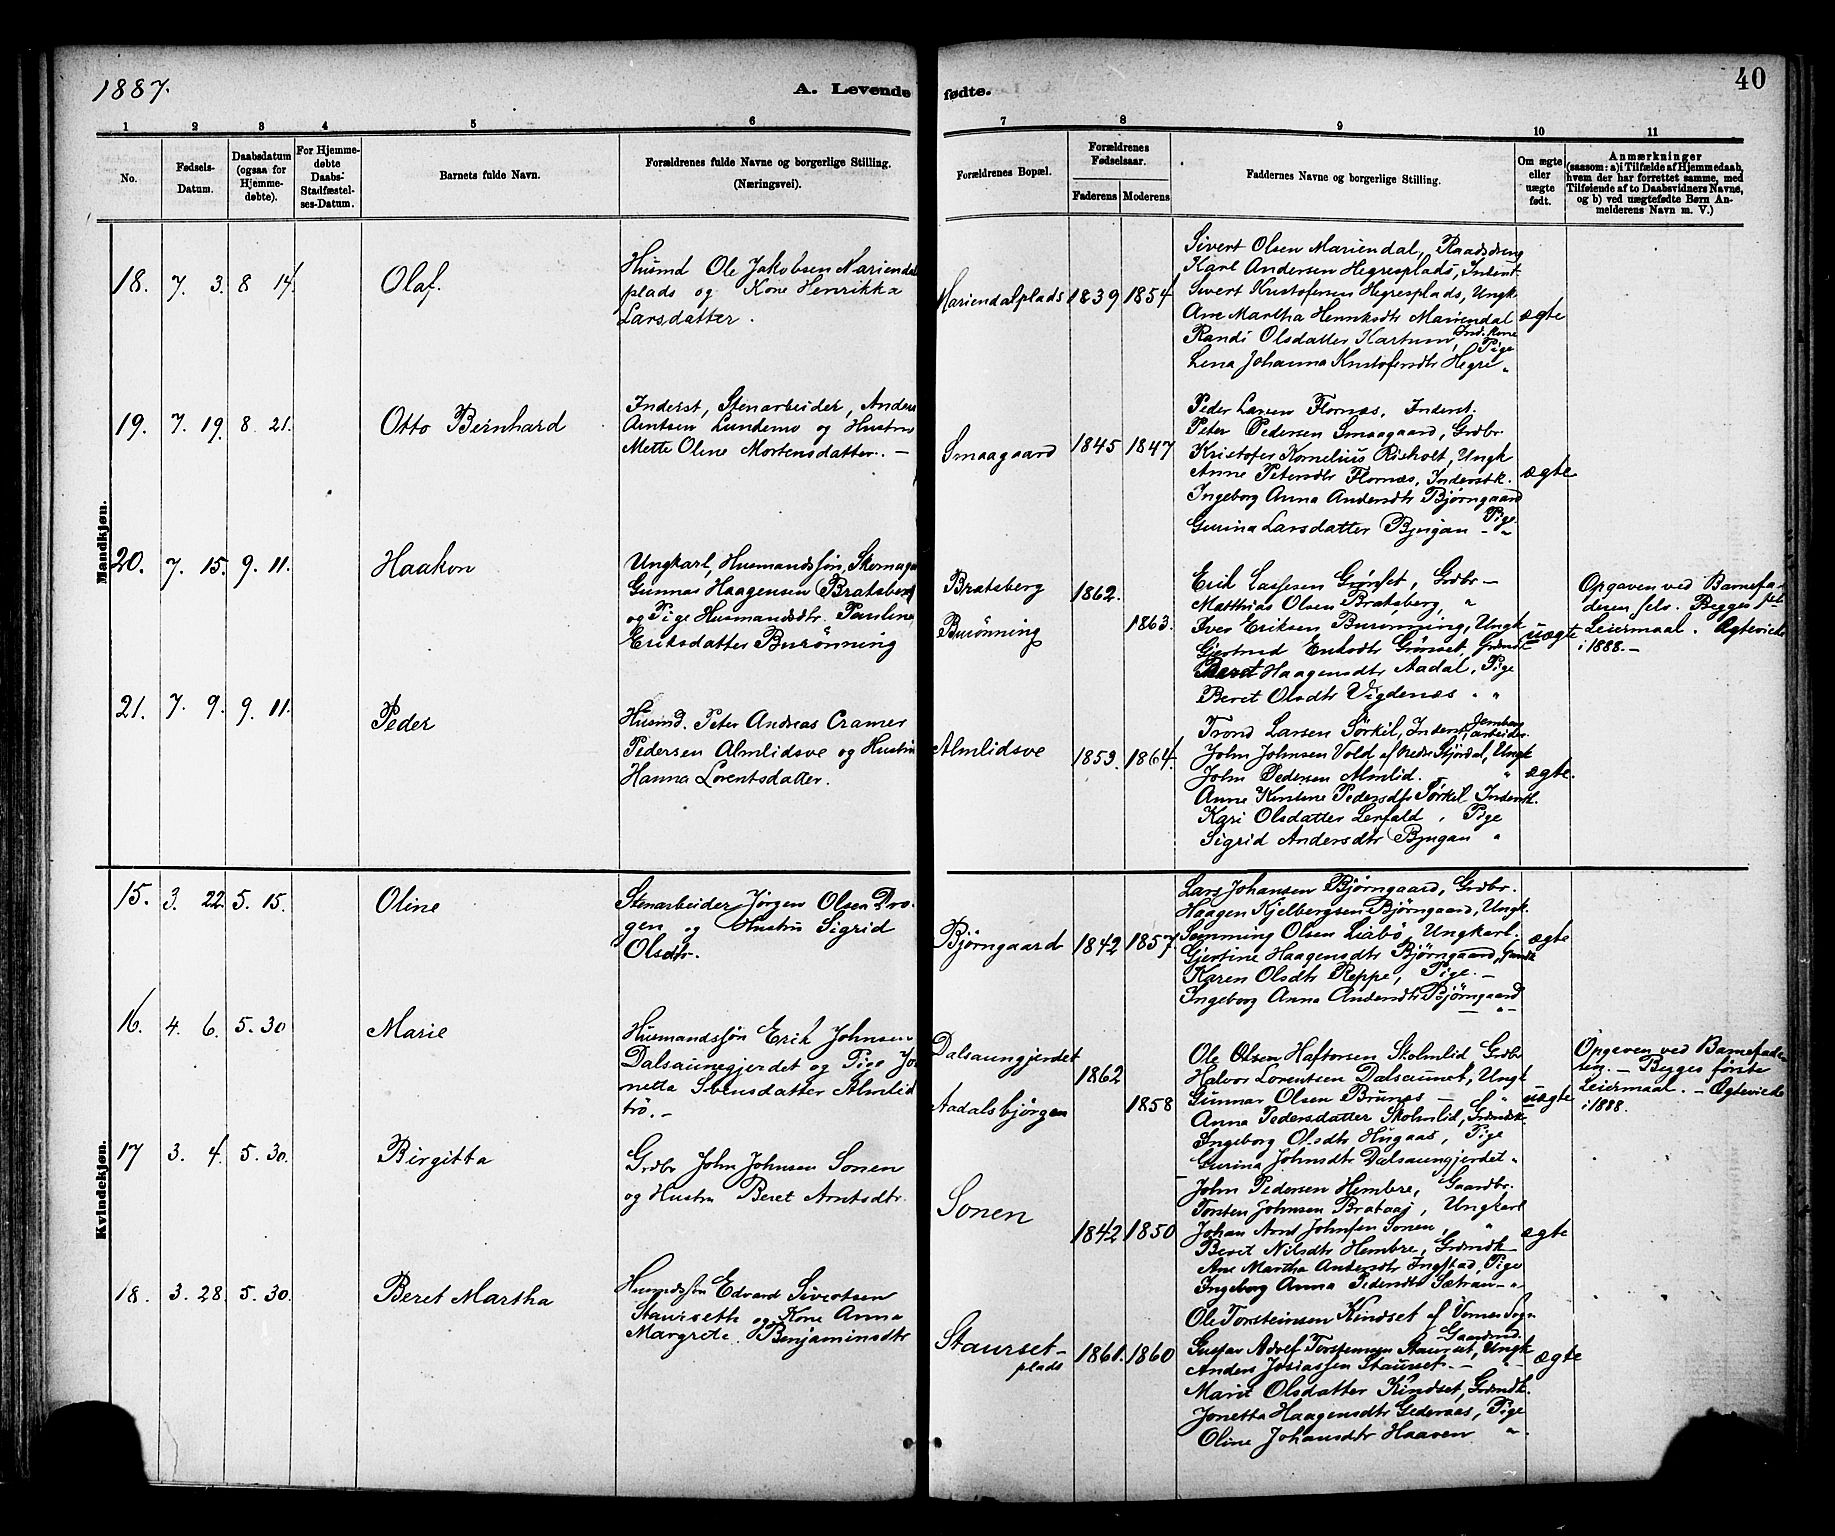 1887.
A. Levende fødte.
40
1 2 3 4 5 6 7 8 9 10 11
No.
Fødsels-Datum.
Daabsdatum (ogsaa for Hjemmedøbte).
For Hjemmedøbte Daabs-Stadfæstelses-Datum.
Barnets fulde Navn.
Forældrenes fulde Navne og borgerlige Stilling.
(Næringsvei).
Forældrenes Bopæl.
Forældrenes Fødselsaar.
Faderens Moderens
Faddernes Navne og borgerlige Stilling.
Om ægte eller uægte født.
Anmærkninger
(saasom: a) i Tilfælde af Hjemmedaab,
hvem der har forrettet samme, med
Tilføiende af to Daabsvidners Navne,
og b) ved uægtefødte Børn An-
melderens Navn m. V.)
Mandkjøn.
18. 7. 3. 8 14. Olaf.
Husmd Ole Jakobsen Mariendal
plads og Kone Henrikka
Larsdatter.
Mariendalplads 1839 1854
Sivert Olsen Mariendal, Raadsdreng
Karl Andersen Hegresplads, Inderst
Sivert Kristofersen Hegresplads, Ungk
Ane Martha Henriksdtr Mariendal
Randi Olsdatter Kartum, Ind. Kone
Pige
Lena Johanna Kristofersdtr Hegre "
ægte
19. 7. 19. 8 21. Otto Bernhard
Inderst, Stenarbeider, Anders
Arntsen Lundemo og Hustru
Mette Oline Mortensdatter. —
Smaagaard 1845 1847
Peder Larsen Flornæs, Inderst.
Peter Pedersen Smaagaard, Grdbr.
Kristofer Kornelius Risholt, Ungk
Anne Petersdtr Flornæs, Inderstk.
Ingeborg Anna Andersdtr Bjørngaard
Pige
Gurina Larsdatter Bjugan — "
ægte
20. 7. 15. 9. 11. Haakon
Ungkarl, Husmandssøn, Skomager
Gunnar Haagensen Bratsberg
og Pige Husmandsdtr. Pauline
Eriksdatter Burønning
Bratsberg 1862.
Burønning 1863.
Erik Lassesen Grønset, Grdbr —
Matthias Olsen Bratsberg, "
Iver Eriksen Burønning, Ungk
Gjertrud Eriksdtr Grønset, Grdmdk
Beret Haagensdtr Aadal, Pige
Beret Olsdtr Vigdenæs " "
uægte
Opgaven ved Barnefa-
deren selv. Begges 1ste
Leiermaal. Ægteviede
i 1888. —
21. 7. 9. 9. 11. Peder
Husmd. Peter Andreas Cramer
Pedersen Almlidsve og Hustru
Hanna Lorentsdatter.
Almlidsve 1853. 1864.
Trond Larsen Sørkil, Inderst, Jernbarb
arbeider
John Johnsen Vold af Nedre Stjørdal, Ungk
John Pedersen Almlid. "
Anne Kirstine Pedersdtr Sørkil Inderstk.
Kari Olsdatter Lerfald, Pige
Sigrid Andersdtr Bjugan "
ægte.
Kvindekjøn.
15. 3. 22. 5. 15. Oline
Stenarbeider Jørgen Olsen Dro-
gen og Hustru Sigrid
Olsdtr.
Bjørngaard 1842 1857.
Lars Johansen Bjørngaard, Grdbr.
Haagen Kjelbergsen Bjørngaard, Ungk.
Semming Olsen Liabø, Ungkarl.
Gjertine Haagensdtr Bjørngaard, Grmdk
Karen Olsdtr Reppe, Pige. —
Ingeborg Anna Andersdtr Bjørngaard
— "—
ægte
16. 4. 6. 5. 30 Marie
Husmandssøn Erik Johnsen
Dalsaunegjerdet og Pige Jo-
netta Svensdatter Almlid
trø. —
Dalsaungjerdet 1862
Aadalsbjørgen 1858
Ole Olsen Haftorsen Skolmlid Grdbr
Halvor Lorentsen Dalsaunet, Ungk
Gunnar Olsen Brunes — "
Anna Pedersdatter Skolmlid, Grdmdk
Ingeborg Olsdtr Hugaas, Pige
Gurina Johnsdtr Dalsaungjerdet "
uægte
Opgaven ved Barnefade-
ren. — Begges første
Leiermaal. — Ægteviede
i 1888.
17 3. 4. 5. 30. Birgitta
Grdbr John Johnsen Sonen
og Hustru Beret Arntsdtr.
Sonen 1842 1850
John Pedersen Hembre, Gaardbr.
Torsten Johnsen Brataaj, Ungkarl
Johan Arnt Johnsen Sonen, "
Berit Nilsdtr Hembre, Grdmdk
Ane Martha Andersdtr Ingstad, Pige
Ingeborg Anna Pedersdtr Sætran — "
ægte
18. 3. 28. 5. 30. Beret Martha
Husmdssøn Edvard Sivertsen
Staurseth og Kone Anna
Margrete Benjaminsdtr
Staurset-
plads 1861. 1860
Ole Torsteinsen Kindset af Vornes Sogn
Gaardmd.
Gustav Adolf Torstensen Staurset, Ungk
Anders Josiassen Staurset — "
Marit Olsdatter Kindset, Grdmdk.
Jonetta Haagensdtr Gederaas, Pige
Oline Johansdtr Haaven "
ægte